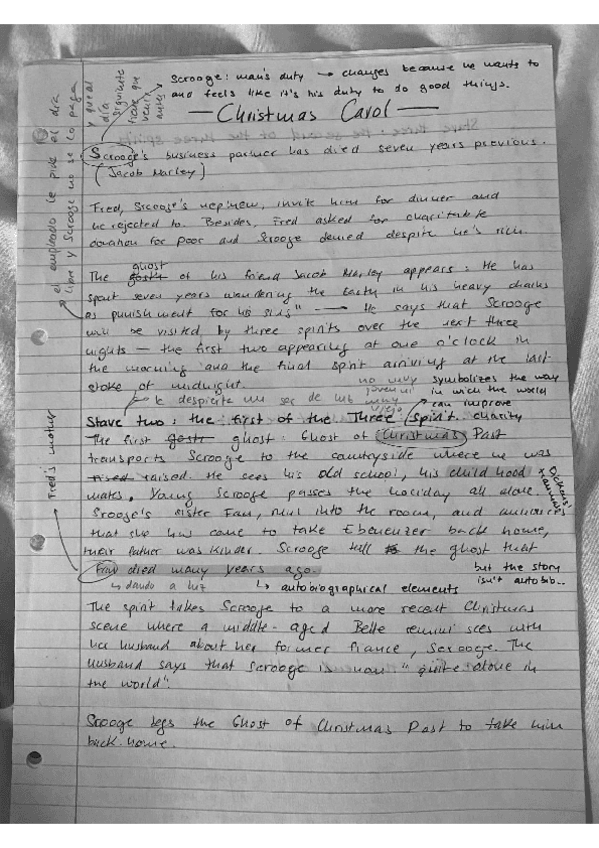 Scrooge: man's duty → changes because he wants to
and feels like it's his duty to do good things.
— Christmas Carol —
y que al
día
siguiente
tiene que
venir
antes
el empleado le pide el día
libre y Scrooge no se lo paga
Scrooge's business partner has died seven years previous.
(Jacob Marley)
Fred, Scrooge's nephew, invite him for dinner and
he rejected to. Besides, Fred asked for charitable
donation for poor and Scrooge denied despite he's rich.
ghost
The of his friend Jacob Marley appears: He has
spent seven years wandering the Earth in his heavy chains
as punishment for his sins" → He says that Scrooge
will be visited by three spirits over the next three
nights — the first two appearing at one o'clock in
the morning and the final spirit arriving at the last
stoke of midnight.
no muy
juvenil
muy
viejo
symbolizes the way
in wich the world
can improve
charity
Stave two: the first of the Three Spirit.
The first gostr ghost: Ghost of Christmas Past
transports Scrooge to the countryside where he was
raised. He sees his old school, his childhood
mates, Young Scrooge passes the holiday all alone.
Dickens'
Srooge's sister Fan, runs into the room, and announces
that she has come to take Ebenenzer back home,
their father was kinder. Scrooge tell the ghost that
Fan died many years ago.
Fred's mother
↳ dando a luz
↳ autobiographical elements
but the story
isn't autobio..
The spirit takes Scrooge to a more recent Christmas
scene where a middle-aged Belle reminisces with
her husband about her former fiance, Scrooge. The
husband says that Scrooge is now "quite alone in
the world".
Srooge begs the Ghost of Christmas Past to take him
back home.